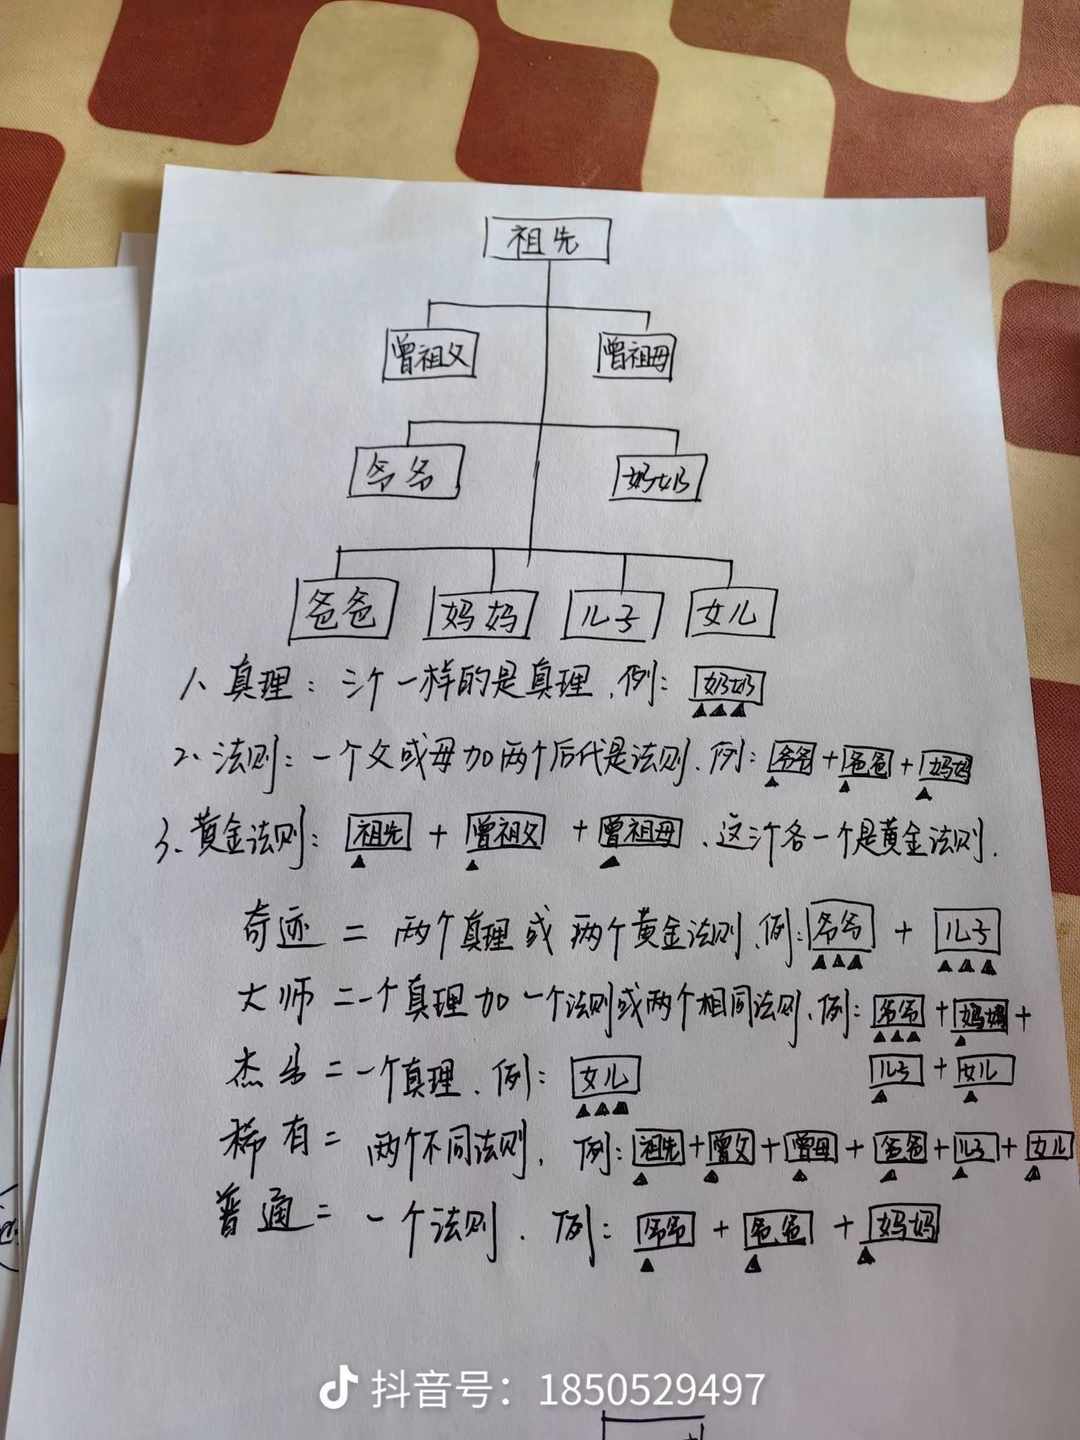 祖先
曾祖父 曾祖母
爷爷 奶奶
爸爸 妈妈 儿子 女儿
1、真理：三个一样的是真理、例：奶奶
▲▲▲
2、法则：一个父或母加两个后代是法则、例：爷爷+爸爸+妈妈
▲ ▲ ▲
3、黄金法则：祖先 + 曾祖父 + 曾祖母、这三个各一个是黄金法则.
▲ ▲ ▲
奇迹 = 两个真理或两个黄金法则、例：爷爷 + 儿子
▲▲▲ ▲▲▲
大师 = 一个真理加一个法则或两个相同法则、例：爷爷+妈妈+
▲▲▲ ▲
儿子 + 女儿
▲ ▲
杰出 = 一个真理、例：女儿
▲▲▲
稀有 = 两个不同法则、例：祖先+曾父+曾母+爸爸+儿子+女儿
▲ ▲ ▲ ▲ ▲ ▲
普通 = 一个法则、例：爷爷 + 爸爸 + 妈妈
▲ ▲ ▲
抖音号：1850529497